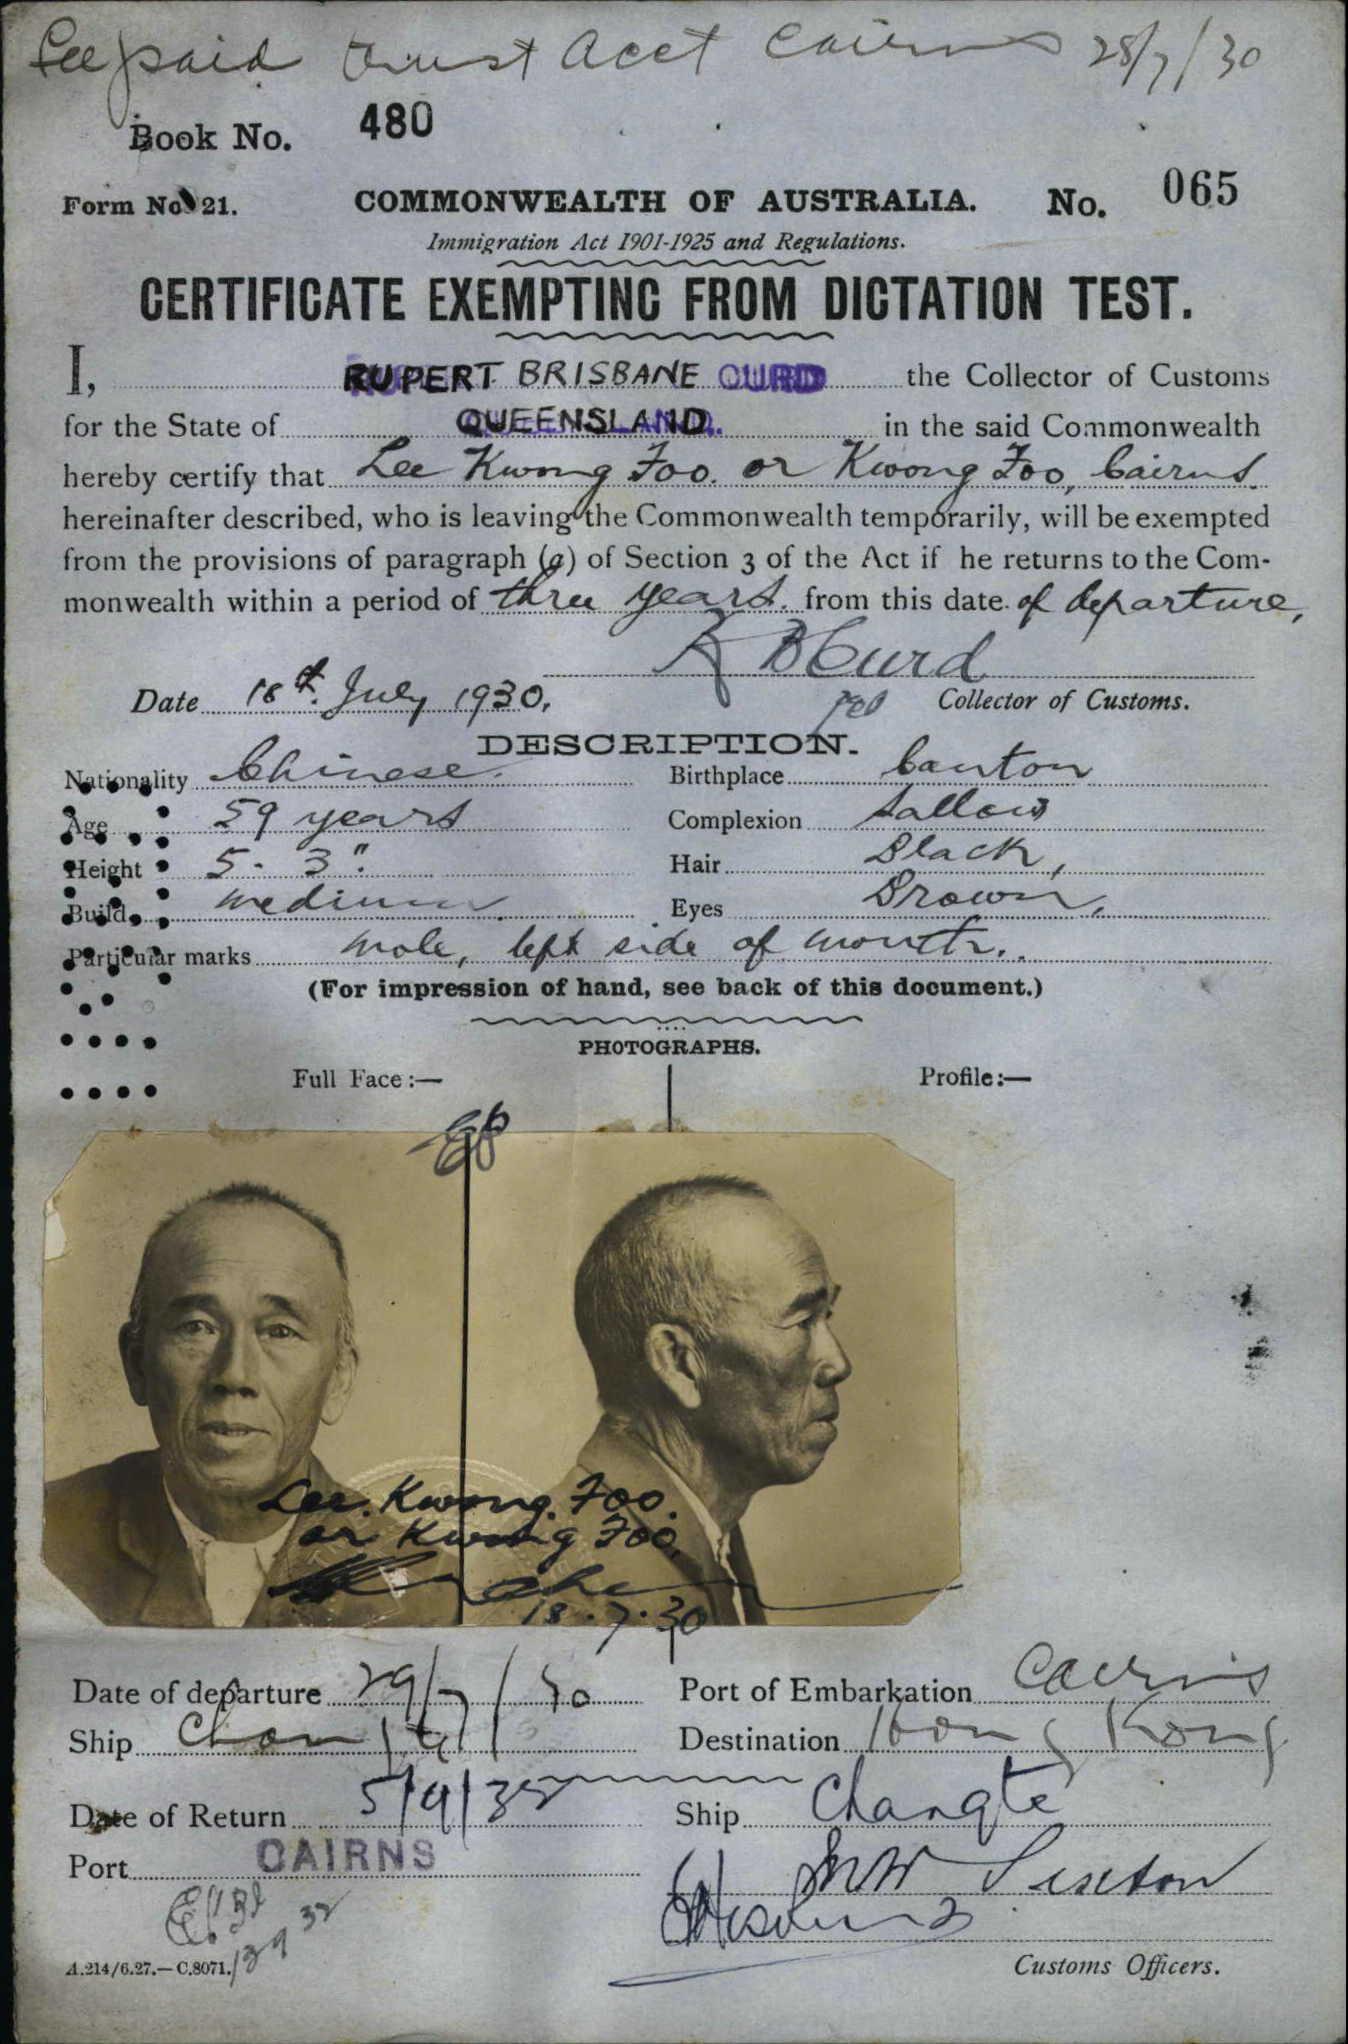 Fee paid Trust Acct Cairns 28/7/30
Book No. 480
Form No. 21. COMMONWEALTH OF AUSTRALIA. No. 065
Immigration Act 1901-1925 and Regulations.
CERTIFICATE EXEMPTING FROM DICTATION TEST.
I, RUPERT BRISBANE CURD the Collector of Customs
for the State of QUEENSLAND. in the said Commonwealth
hereby certify that Lee Kwong Foo. or Kwong Foo, Cairns.
hereinafter described, who is leaving the Commonwealth temporarily, will be exempted
from the provisions of paragraph (a) of Section 3 of the Act if he returns to the Com-
monwealth within a period of three years. from this date of departure,
R B Curd
Date 18th. July 1930. Collector of Customs.
DESCRIPTION.
Nationality Chinese. Birthplace Canton
Age 59 years Complexion Sallow
Height 5 - 3". Hair Black,
Build medium. Eyes Brown,
Particular marks mole, left side of mouth.
(For impression of hand, see back of this document.)
PHOTOGRAPHS.
Full Face:— Profile:—
Lee Kwong Foo.
or Kwong Foo,
18.7.30
Date of departure 29/7/30 Port of Embarkation Cairns
Ship Changte Destination Hong Kong
Date of Return 5/9/32 Ship Changte
Port CAIRNS
Customs Officers.
A.214/6.27.—C.8071.